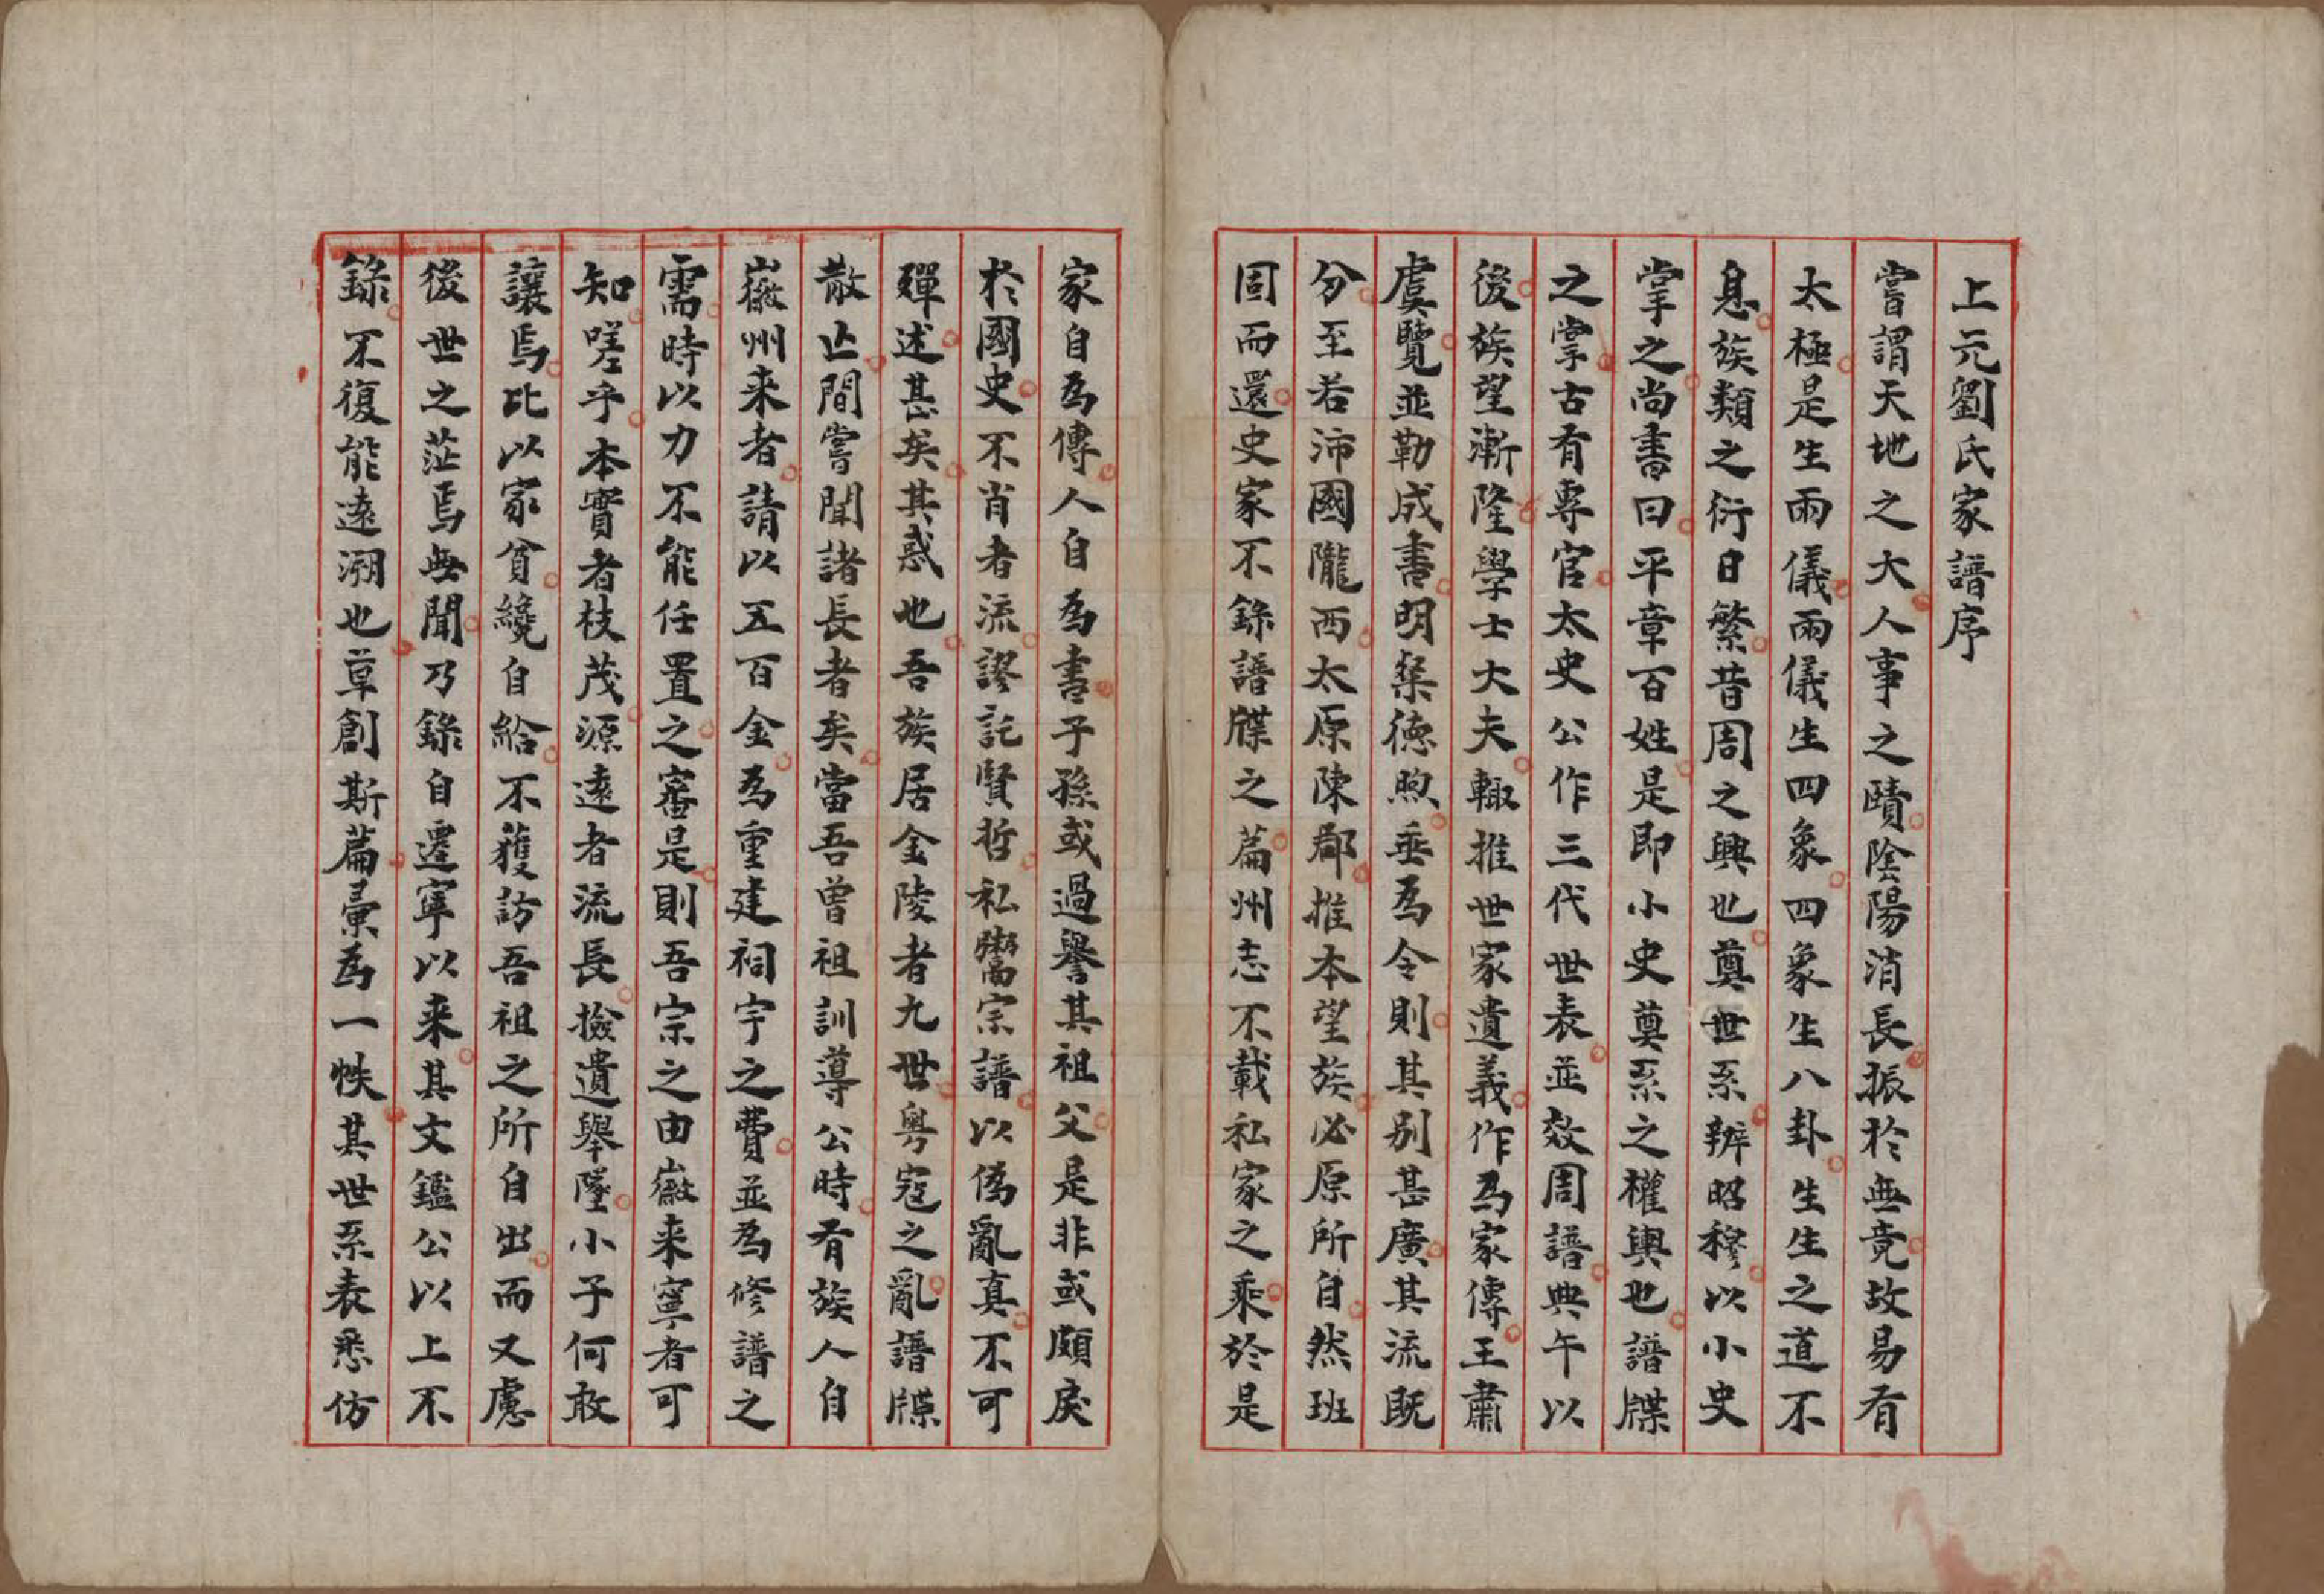 上元劉氏家譜序
嘗謂天地之大人事之賾陰陽消長振於無竟故易有
太極是生兩儀兩儀生四象四象生八卦生生之道不
息族類之衍日繁昔周之興也奠世系辨昭穆以小史
掌之尚書曰平章百姓是即小史奠系之權輿也譜牒
之掌古有專官太史公作三代世表並效周譜典午以
後族望漸隆學士大夫輙推世家遺義作為家傳王肅
虞覽並勒成書明粲德煦垂為令則其別甚廣其流既
分至若沛國隴西太原陳郡推本望族必原所自然班
固而還史家不錄譜牒之篇州志不載私家之乘於是
家自為傳人自為書子孫或過譽其祖父是非或頗戾
於國史不肖者流謬託賢哲私鬻宗譜以偽亂真不可
殫述甚矣其惑也吾族居金陵者九世粵寇之亂譜牒
散亾間嘗聞諸長者矣當吾曾祖訓導公時有族人自
嶶州来者請以五百金為重建祠宇之費並為修譜之
需時以力不能任置之審是則吾宗之由嶶来寧者可
知嗟乎本實者枝茂源遠者流長撿遺舉墜小子何敢
讓焉比以家貧纔自給不獲訪吾祖之所自出而又慮
後世之茫焉無聞乃錄自遷寧以来其文鑑公以上不
錄不復能遠溯也草創斯篇彙為一帙其世系表悉仿